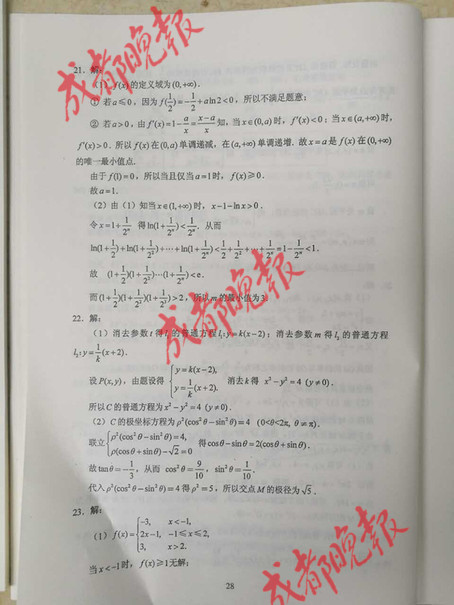 21. 解:
(1) f(x)的定义域为(0,+∞).
① 若a≤0, 因为f(1/2)=-1/2+aln2<0, 所以不满足题意;
② 若a>0, 由f'(x)=1-a/x=(x-a)/x知, 当x∈(0,a)时, f'(x)<0; 当x∈(a,+∞)时,
f'(x)>0. 所以f(x)在(0,a)单调递减, 在(a,+∞)单调递增. 故x=a是f(x)在(0,+∞)
的唯一最小值点.
由于f(1)=0, 所以当且仅当a=1时, f(x)≥0.
故a=1.
(2) 由(1)知当x∈(1,+∞)时, x-1-ln x>0.
令x=1+1/2ⁿ 得ln(1+1/2ⁿ)<1/2ⁿ. 从而
ln(1+1/2)+ln(1+1/2²)+⋯+ln(1+1/2ⁿ)<1/2+1/2²+⋯+1/2ⁿ=1-1/2ⁿ<1.
故 (1+1/2)(1+1/2²)⋯(1+1/2ⁿ)<e.
而(1+1/2)(1+1/2²)(1+1/2³)>2, 所以m的最小值为3.
22. 解:
(1) 消去参数t得l₁的普通方程l₁:y=k(x-2); 消去参数m得l₂的普通方程
l₂:y=1/k(x+2).
设P(x,y), 由题设得 {y=k(x-2), y=1/k(x+2). 消去k得 x²-y²=4 (y≠0).
所以C的普通方程为x²-y²=4 (y≠0).
(2) C的极坐标方程为ρ²(cos²θ-sin²θ)=4 (0<θ<2π, θ≠π).
联立{ρ²(cos²θ-sin²θ)=4, ρ(cosθ+sinθ)-√2=0 得cosθ-sinθ=2(cosθ+sinθ).
故tanθ=-1/3, 从而 cos²θ=9/10, sin²θ=1/10.
代入ρ²(cos²θ-sin²θ)=4得ρ²=5, 所以交点M的极径为√5.
23. 解:
(1) f(x)={-3, x<-1, 2x-1, -1≤x≤2, 3, x>2.
当x<-1时, f(x)≥1无解;
28
成都晚报
成都晚报
成都晚报